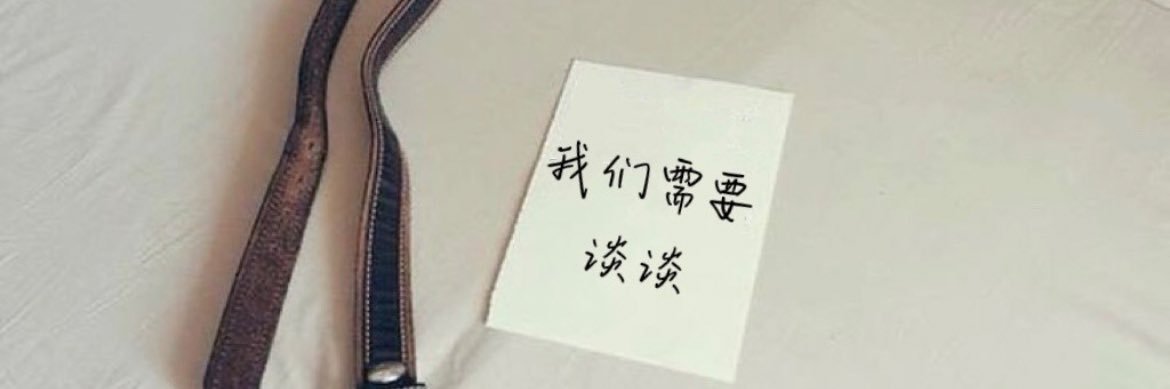 我们需要
谈谈